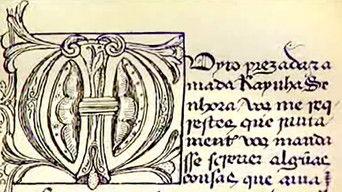 MUyto prezada z a
mada Raynha Se
nhora vos me req
restes, que junta
ment vos manda
sse screuer algũas
cousas, que auia